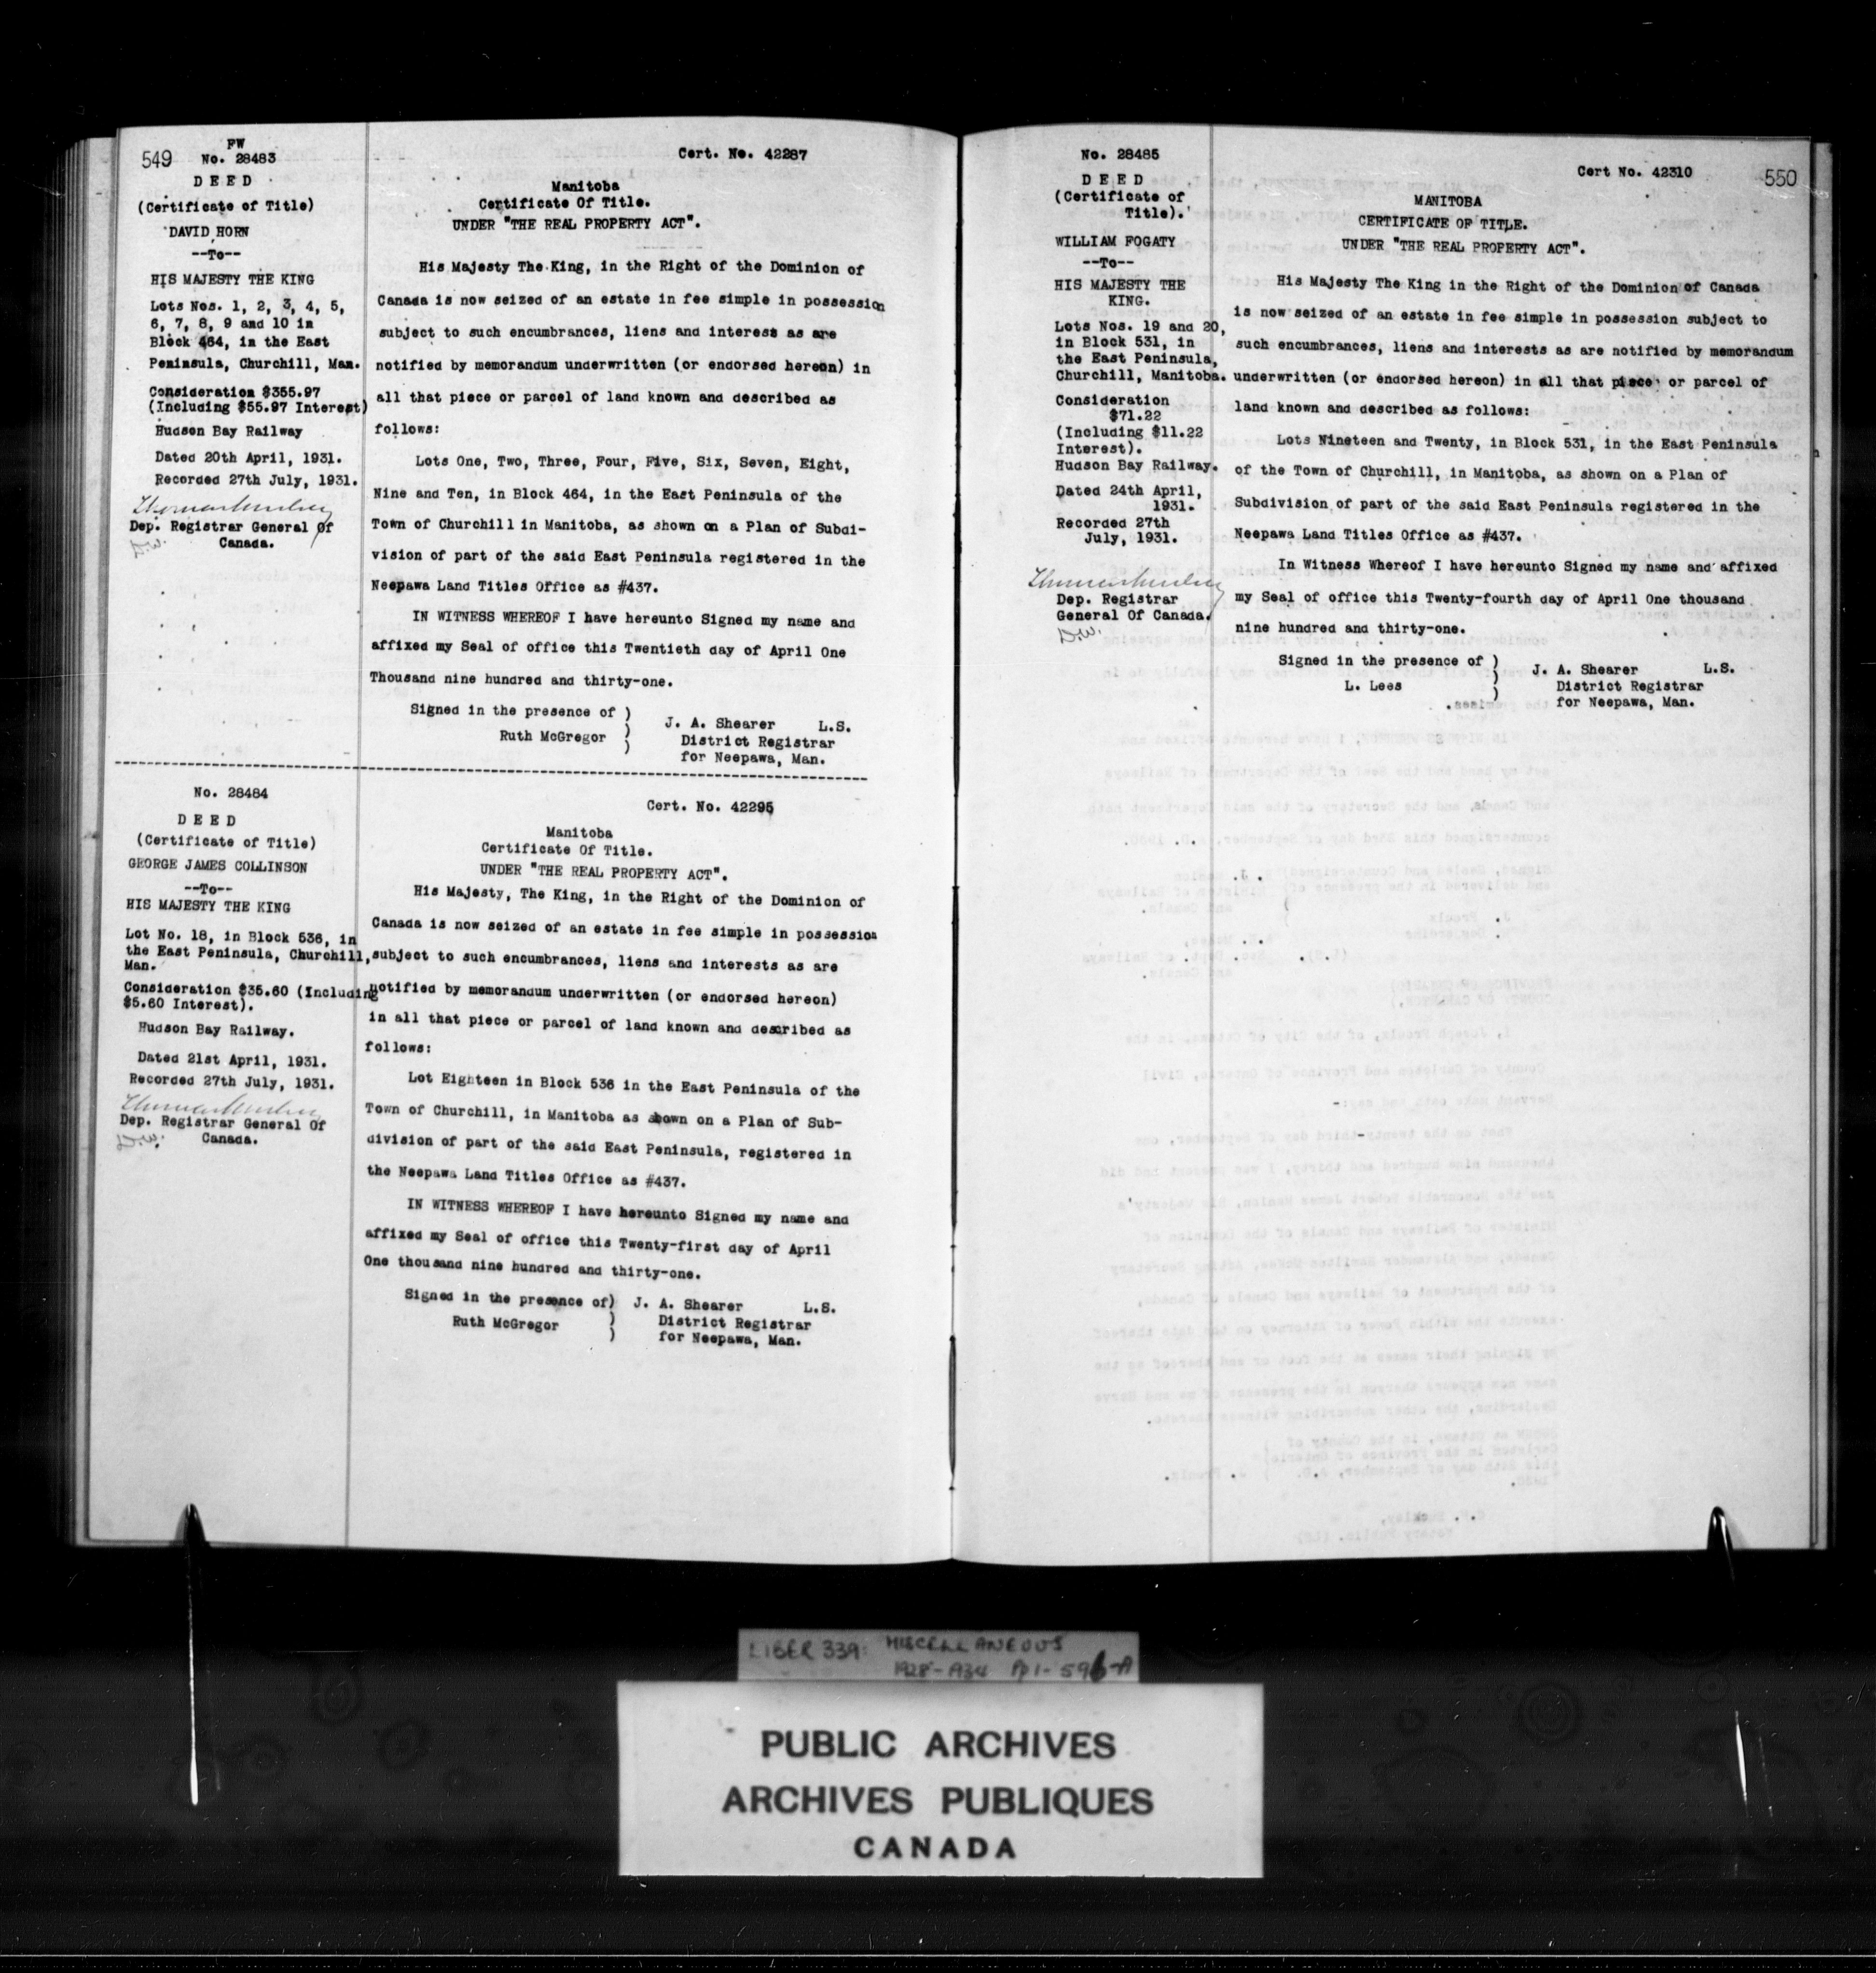 549
FW
No. 28483
D E E D
(Certificate of Title)
DAVID HORN
--To--
HIS MAJESTY THE KING
Lots Nos. 1, 2, 3, 4, 5,
6, 7, 8, 9 and 10 in
Block 464, in the East
Peninsula, Churchill, Man.
Consideration $355.97
(Including $55.97 Interest)
Hudson Bay Railway
Dated 20th April, 1931.
Recorded 27th July, 1931.
Dep. Registrar General Of
Canada.
D.W.
Cert. No. 42287
Manitoba
Certificate Of Title.
UNDER "THE REAL PROPERTY ACT".
His Majesty The King, in the Right of the Dominion of
Canada is now seized of an estate in fee simple in possession
subject to such encumbrances, liens and interess as are
notified by memorandum underwritten (or endorsed hereon) in
all that piece or parcel of land known and described as
follows:
Lots One, Two, Three, Four, Five, Six, Seven, Eight,
Nine and Ten, in Block 464, in the East Peninsula of the
Town of Churchill in Manitoba, as shown on a Plan of Subdi-
vision of part of the said East Peninsula registered in the
Neepawa Land Titles Office as #437.
IN WITNESS WHEREOF I have hereunto Signed my name and
affixed my Seal of office this Twentieth day of April One
Thousand nine hundred and thirty-one.
Signed in the presence of )
Ruth McGregor )
)
J. A. Shearer L.S.
District Registrar
for Neepawa, Man.
No. 28484
D E E D
(Certificate of Title)
GEORGE JAMES COLLINSON
--To--
HIS MAJESTY THE KING
Lot No. 18, in Block 536, in
the East Peninsula, Churchill,
Man.
Consideration $35.60 (Including
$5.60 Interest).
Hudson Bay Railway.
Dated 21st April, 1931.
Recorded 27th July, 1931.
Dep. Registrar General Of
Canada.
D.W.
Cert. No. 42295
Manitoba
Certificate Of Title.
UNDER "THE REAL PROPERTY ACT".
His Majesty, The King, in the Right of the Dominion of
Canada is now seized of an estate in fee simple in possession
subject to such encumbrances, liens and interests as are
notified by memorandum underwritten (or endorsed hereon)
in all that piece or parcel of land known and described as
follows:
Lot Eighteen in Block 536 in the East Peninsula of the
Town of Churchill, in Manitoba as shown on a Plan of Sub-
division of part of the said East Peninsula, registered in
the Neepawa Land Titles Office as #437.
IN WITNESS WHEREOF I have hereunto Signed my name and
affixed my Seal of office this Twenty-first day of April
One thousand nine hundred and thirty-one.
Signed in the presence of)
Ruth McGregor )
)
J. A. Shearer L.S.
District Registrar
for Neepawa, Man.
550
No. 28485
D E E D
(Certificate of
Title).
WILLIAM FOGATY
--To--
HIS MAJESTY THE
KING.
Lots Nos. 19 and 20,
in Block 531, in
the East Peninsula,
Churchill, Manitoba.
Consideration
$71.22
(Including $11.22
Interest).
Hudson Bay Railway.
Dated 24th April,
1931.
Recorded 27th
July, 1931.
Dep. Registrar
General Of Canada.
D.W.
Cert No. 42310
MANITOBA
CERTIFICATE OF TITLE.
UNDER "THE REAL PROPERTY ACT".
His Majesty The King in the Right of the Dominion of Canada
is now seized of an estate in fee simple in possession subject to
such encumbrances, liens and interests as are notified by memorandum
underwritten (or endorsed hereon) in all that piece or parcel of
land known and described as follows:
Lots Nineteen and Twenty, in Block 531, in the East Peninsula
of the Town of Churchill, in Manitoba, as shown on a Plan of
Subdivision of part of the said East Peninsula registered in the
Neepawa Land Titles Office as #437.
In Witness Whereof I have hereunto Signed my name and affixed
my Seal of office this Twenty-fourth day of April One thousand
nine hundred and thirty-one.
Signed in the presence of )
L. Lees )
)
J. A. Shearer L.S.
District Registrar
for Neepawa, Man.
LIBER 339: MISCELLANEOUS
1928-1934 Pp 1-596-A
PUBLIC ARCHIVES
ARCHIVES PUBLIQUES
CANADA